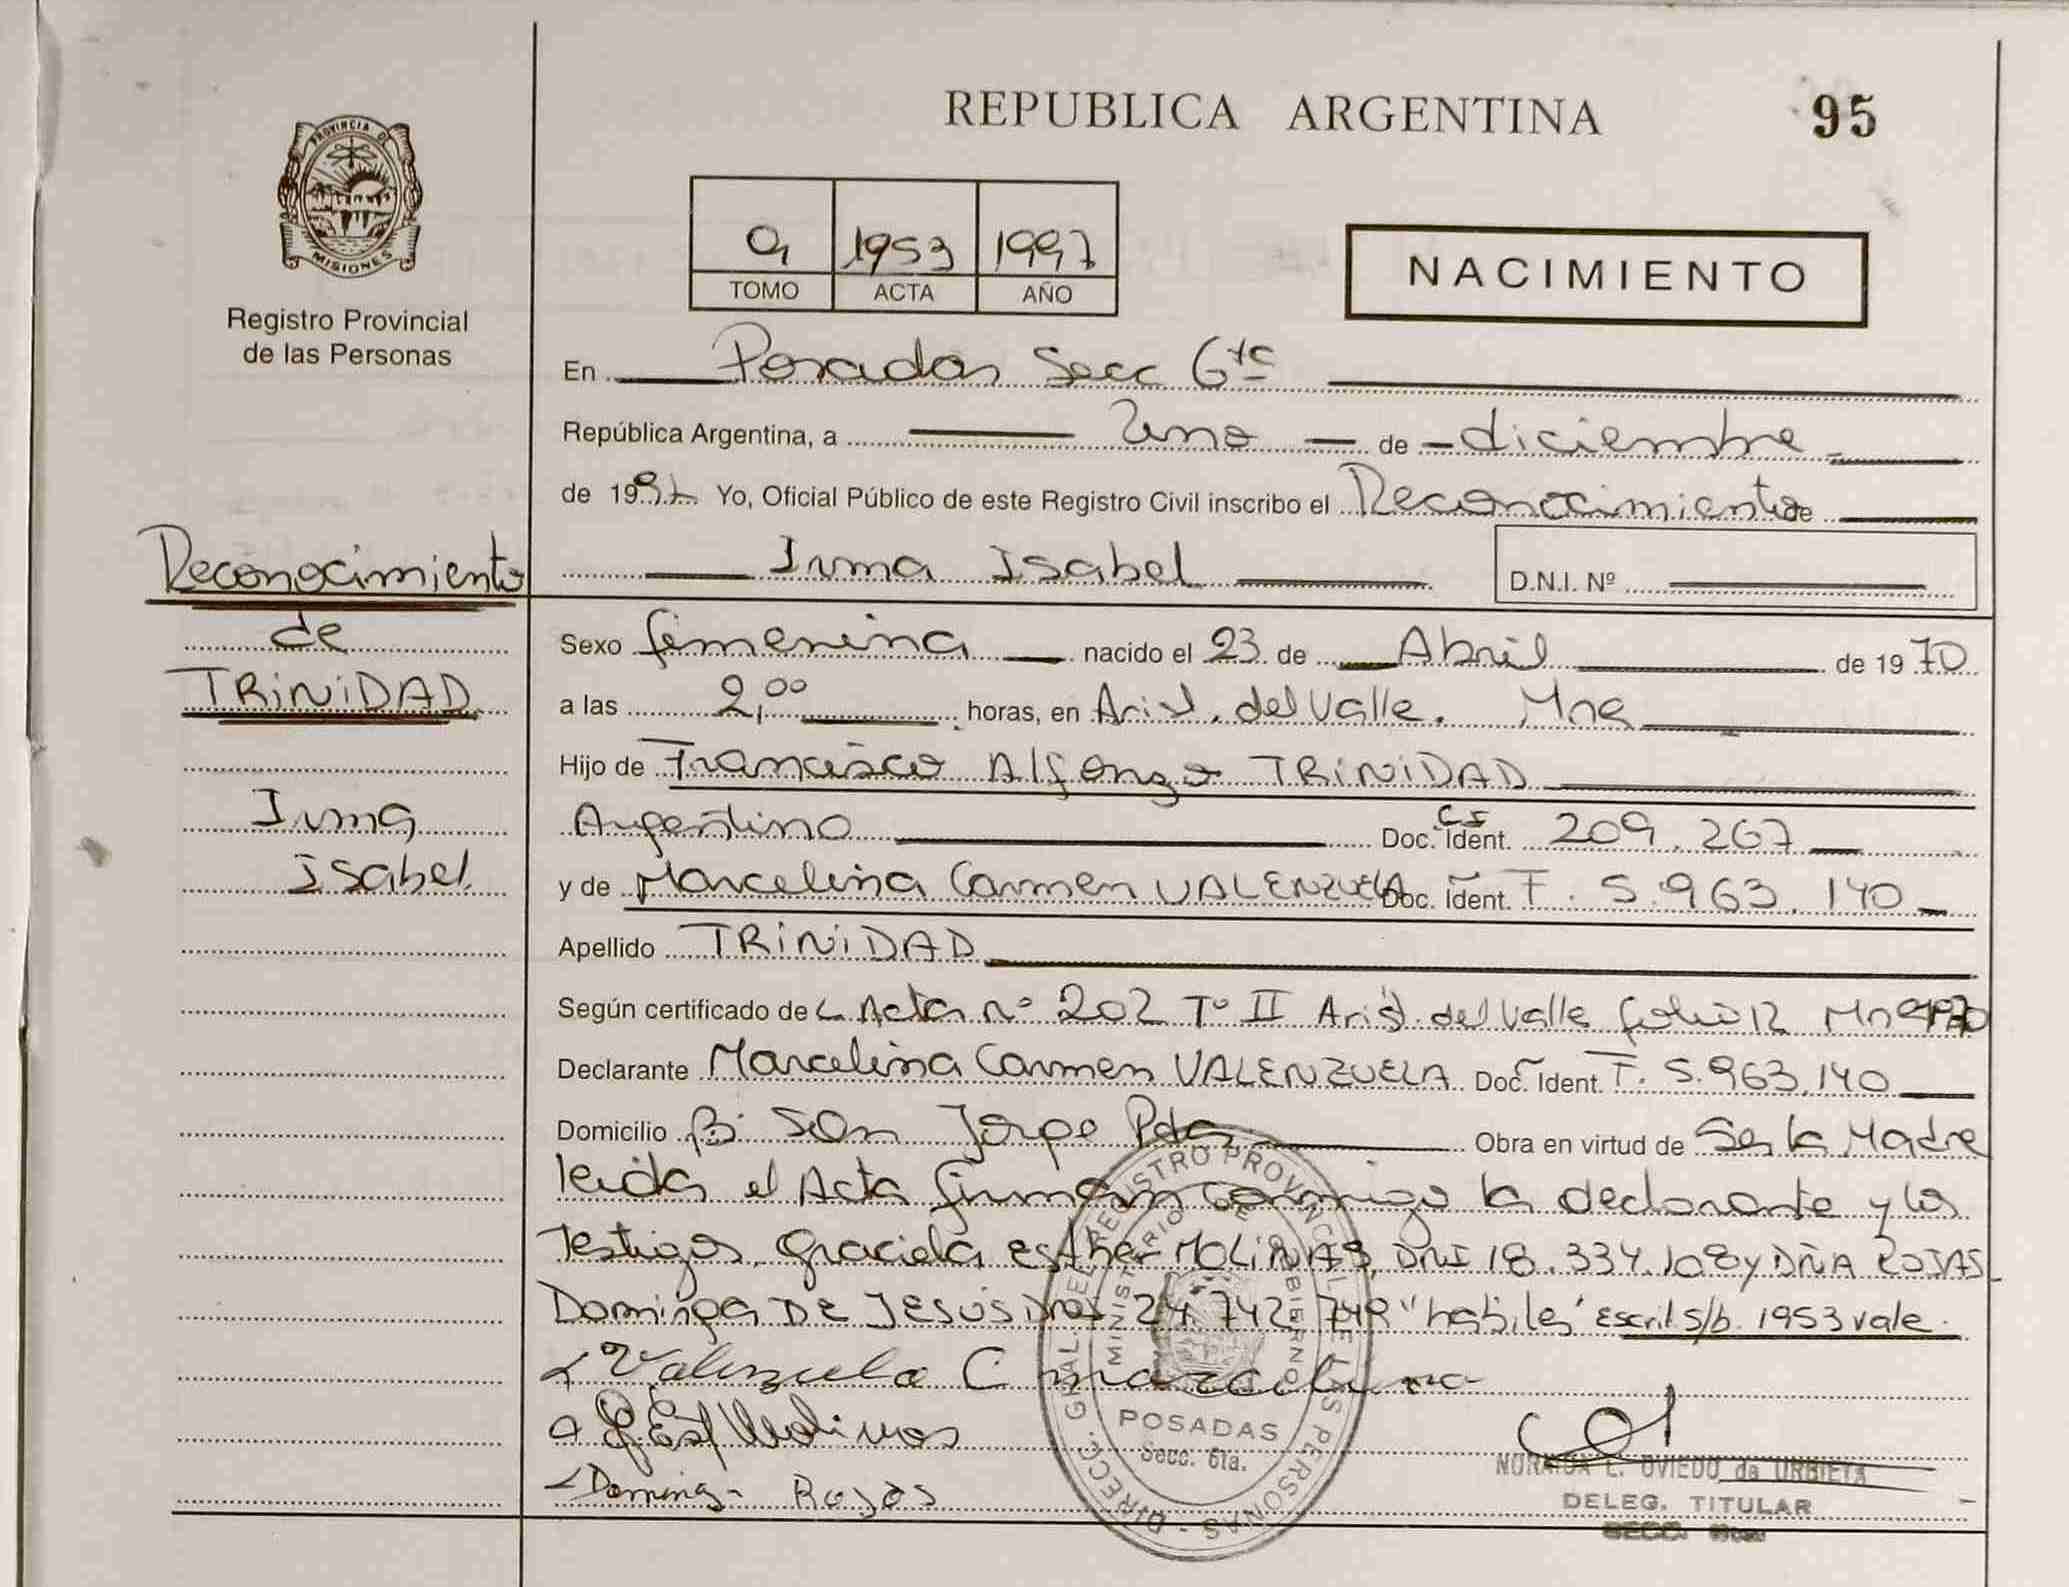 REPUBLICA ARGENTINA
95
PROVINCIA DE
MISIONES
Registro Provincial
de las Personas
9 1953 1997
TOMO ACTA AÑO
NACIMIENTO
En Posadas Secc 6ta
República Argentina, a Uno de diciembre
de 1997 Yo, Oficial Público de este Registro Civil inscribo el Reconocimiento de
Irma Isabel D.N.I. Nº
Reconocimiento
de
TRINIDAD
Irma
Isabel
Sexo femenina nacido el 23 de Abril de 1970
a las 2,00 horas, en Arist. del Valle. Mnes
Hijo de Francisco Alfonzo TRINIDAD
Argentino Doc. Ident. CI 209.267
y de Marcelina Carmen VALENZUELA Doc. Ident. F. 5.963.140
Apellido TRINIDAD
Según certificado de Acta nº 202 Tº II Arist. del Valle folio 12 Mnes 1970
Declarante Marcelina Carmen VALENZUELA Doc. Ident. F. 5.963.140
Domicilio Bº San Jorge Pdas Obra en virtud de Ser la Madre
leida el Acta firman conmigo la declarante y los
Testigos, Graciela Esther MOLINAS, DNI 18.334.108 y DÑA ROJAS
Dominga DE JESUS DNI 24.742.749 "habiles" Escrit s/b. 1953 vale.
Valenzuela C marcelina
G Est Molinas
Dominga Rojas
DIRECC. GRAL DEL REGISTRO PROVINCIAL DE LAS PERSONAS
MINISTERIO DE GOBIERNO
POSADAS
Secc. 6ta.
OVIEDO de URBIETA
DELEG. TITULAR
SECC.